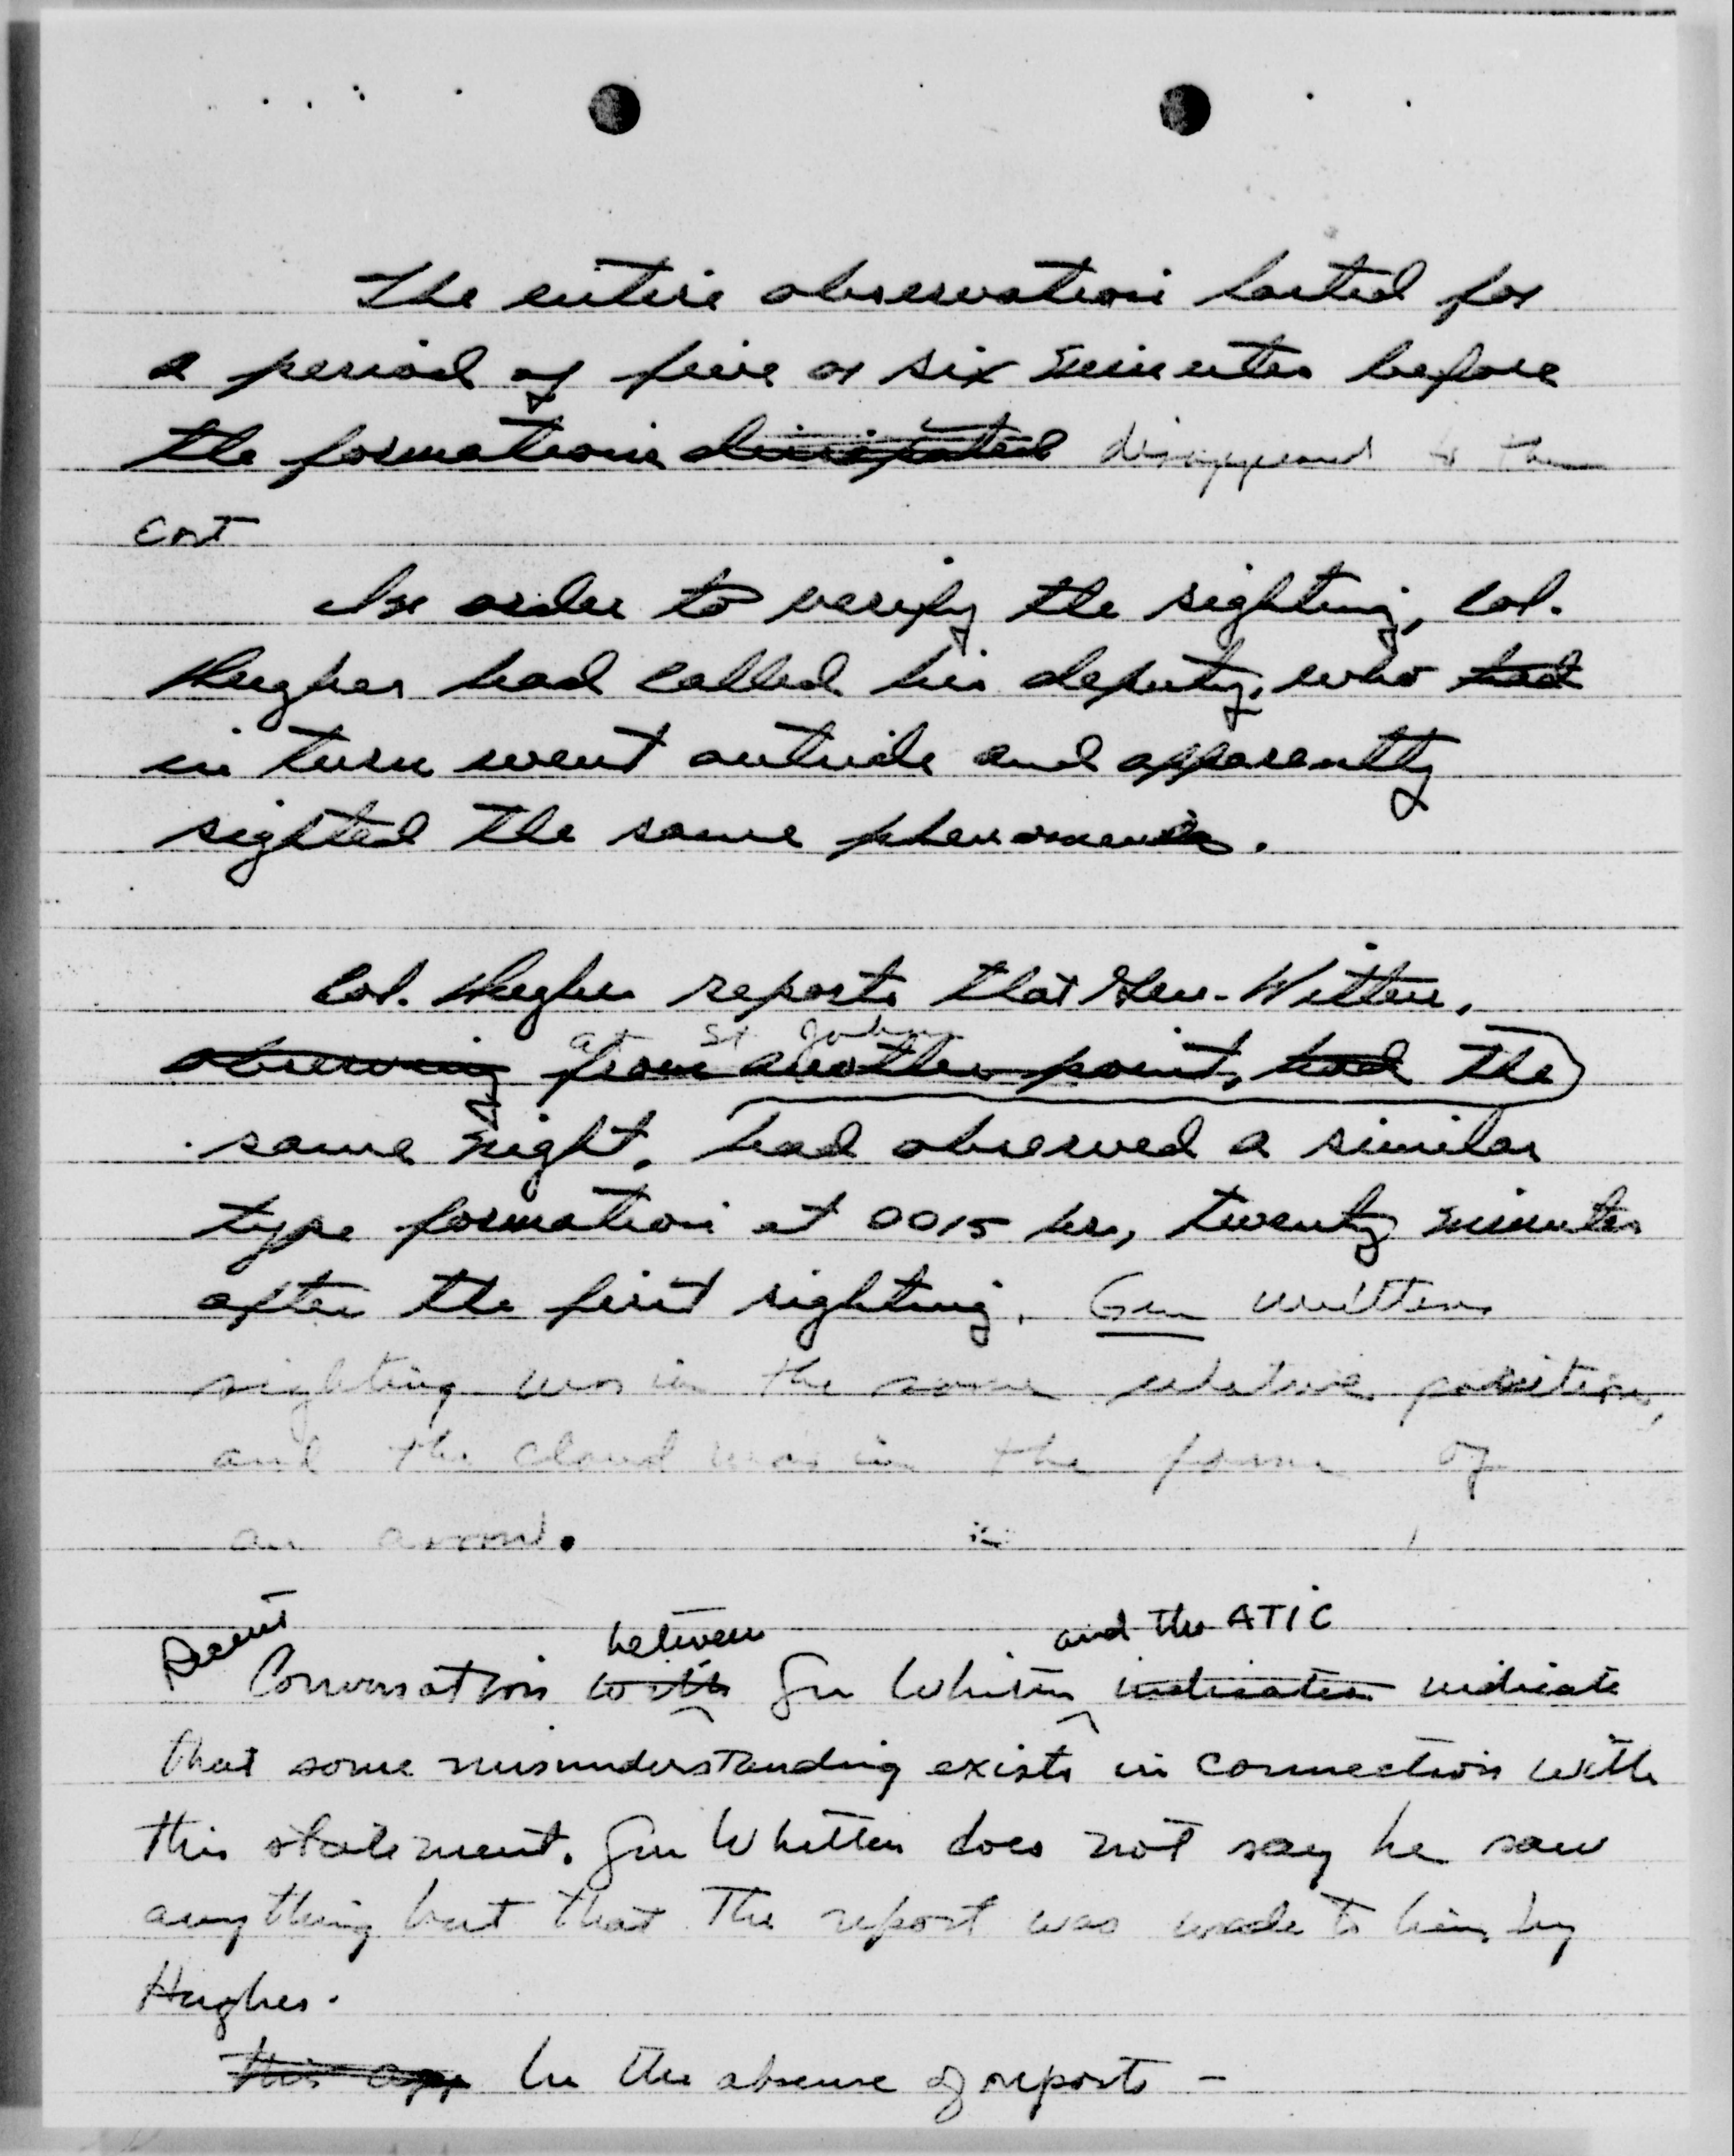 The entire observation lasted for
a period of five or six minutes before
the formation dissipated disappeared to the
east
In order to verify the sighting, Col.
Hughes had called his deputy, who had
in turn went outside and apparently
sighted the same phenomenon.
Col. Hughes reports that Gen. Witten,
at St. John
observing from another point, had the
same night, had observed a similar
type formation at 0015 hrs, twenty minutes
after the first sighting. Gen Witten
sighting was in the same relative position,
and the cloud was in the form of
an arrow.
Recent between and the ATIC
Conversation with Gen Whitten indicates indicate
that some misunderstanding exists in connection with
this statement. Gen Whitten does not say he saw
anything but that the report was made to him by
Hughes.
this app In the absence of reports -